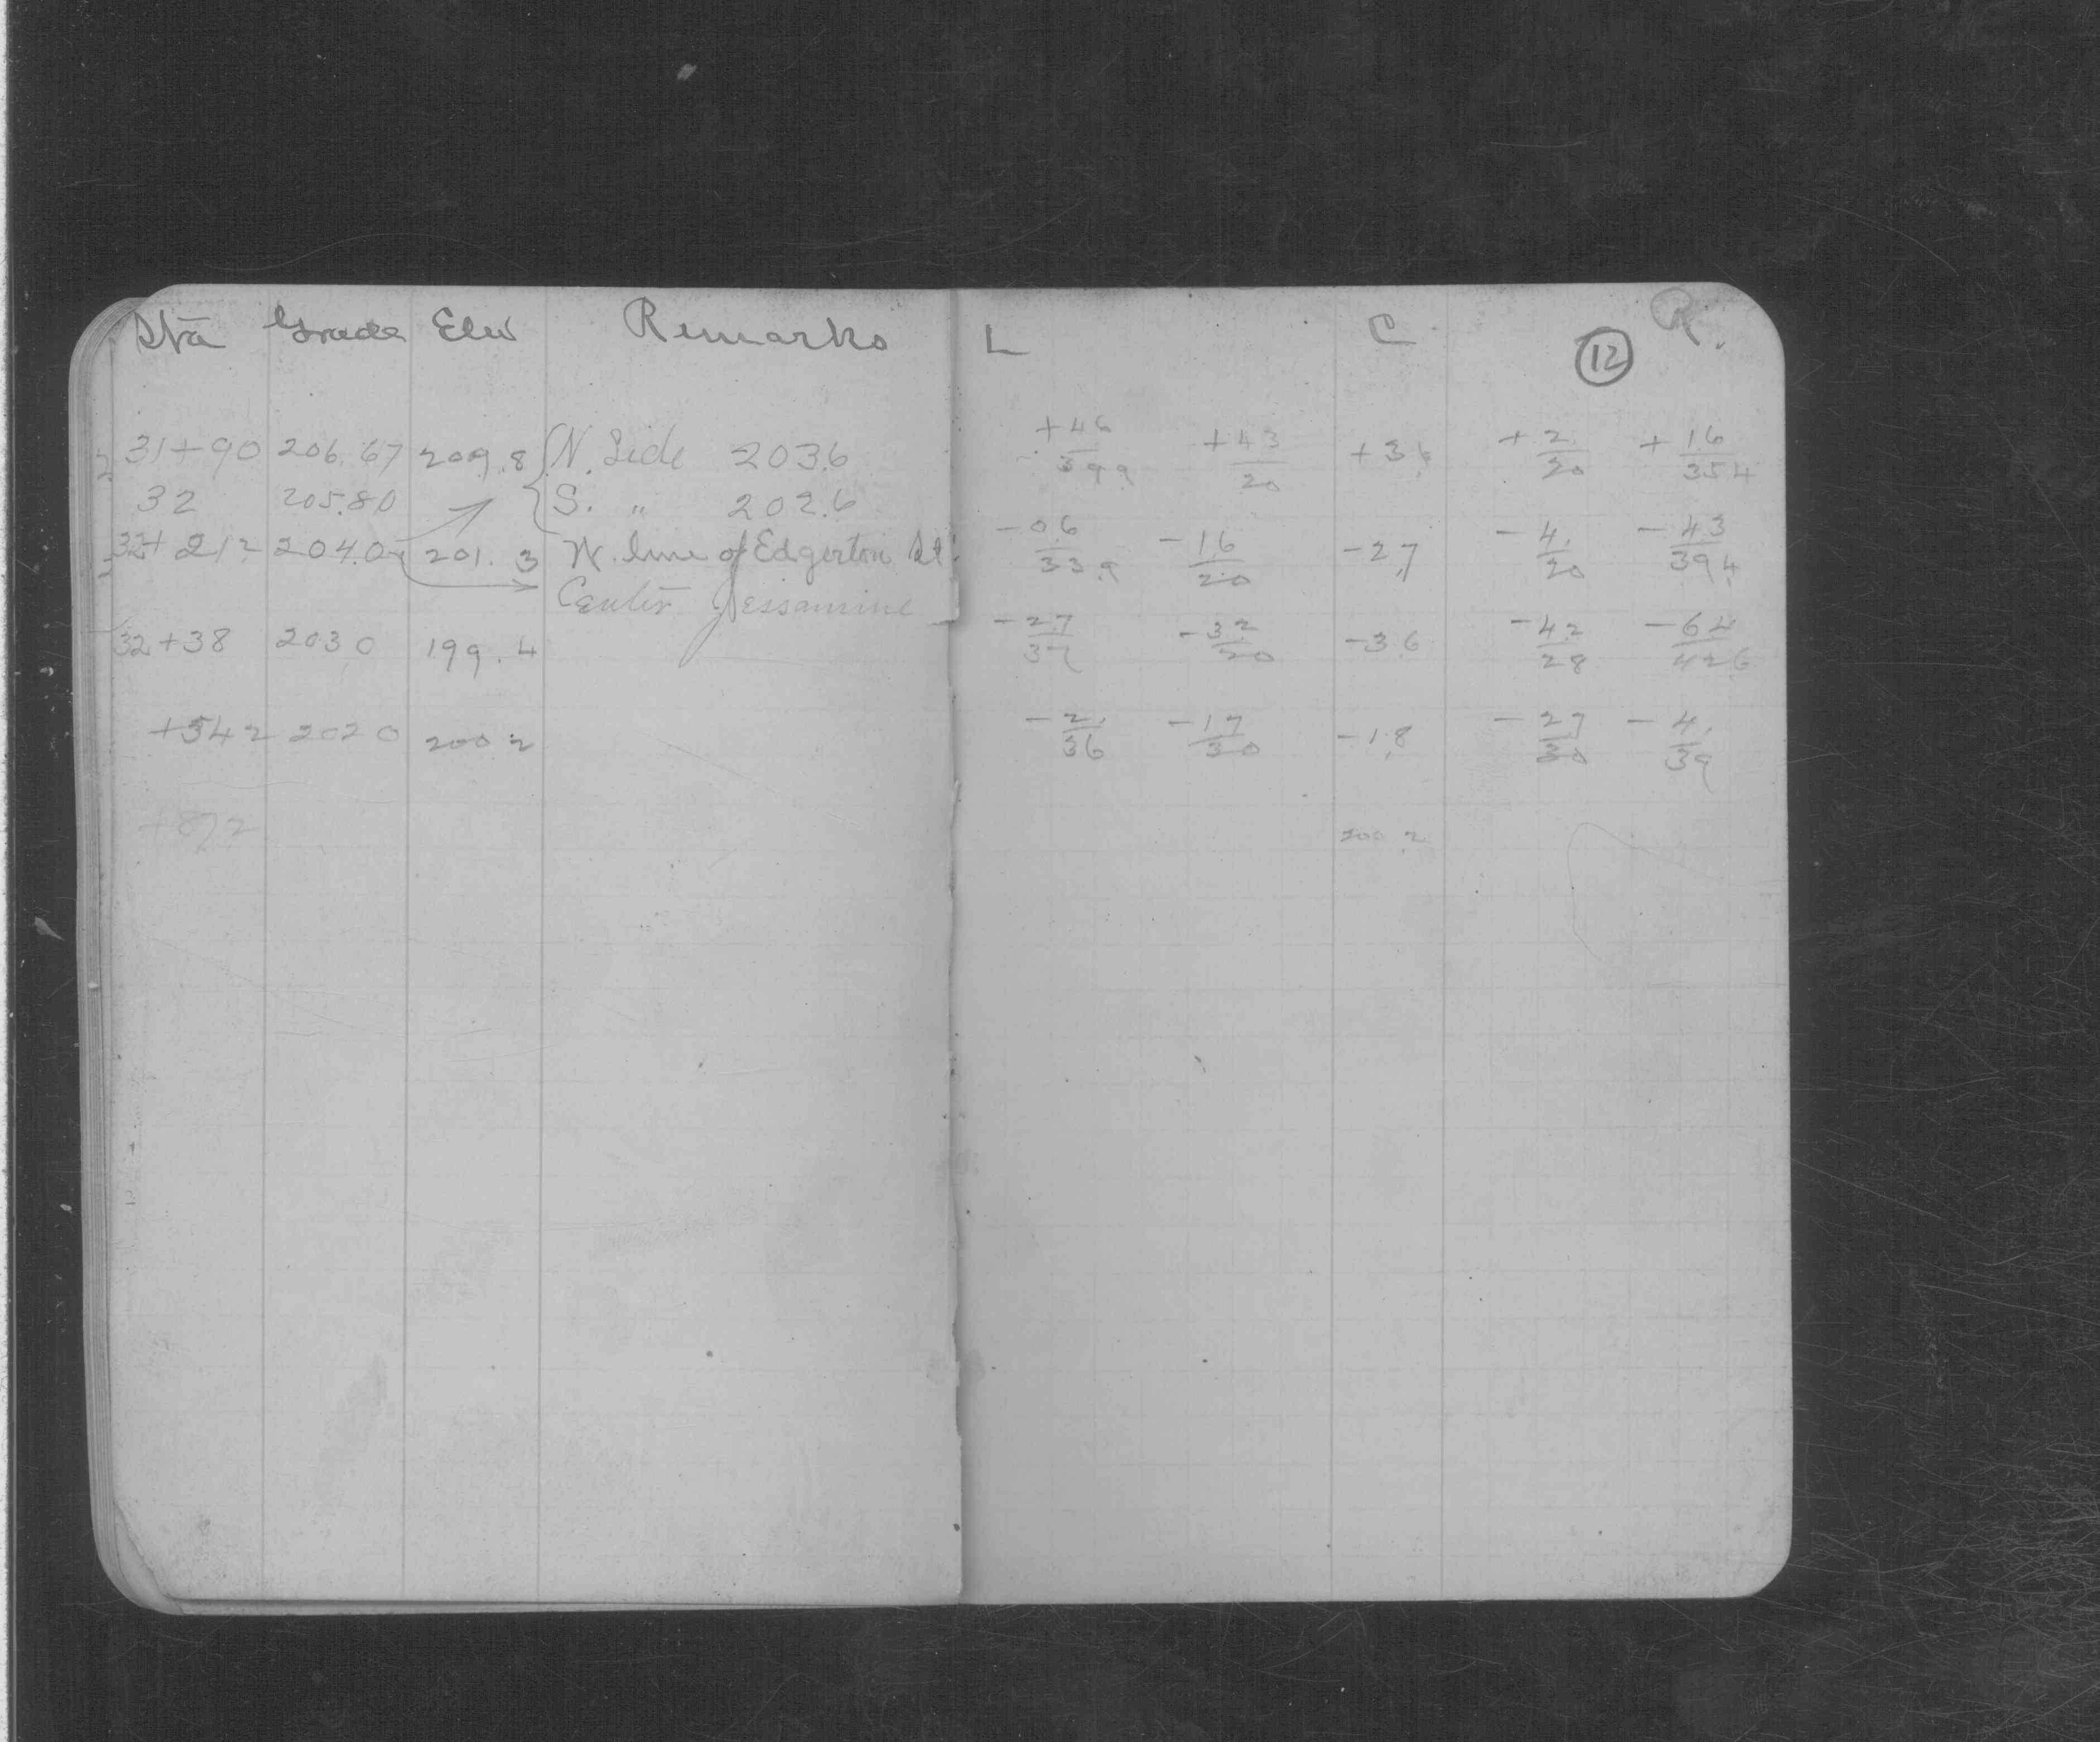 Sta Grade Elev Remarks L C (12) R.
31+90 206.67 209.8 N. Side 203.6 +4.6/39.9 +4.3/20 +3.1 +2./20 +1.6/35.4
32 205.80 S. " 202.6
32+21.2 204.0 201.3 W. line of Edgerton St. -0.6/33.9 -1.6/20 -2.7 -4./20 -4.3/39.4
Center Jessamine
32+38 203.0 199.4 -2.7/37 -3.2/20 -3.6 -4.2/28 -6.4/42.6
+54.2 202.0 200.2 -2./36 -1.7/30 -1.8 -2.7/30 -4./39
+87.2 200.2